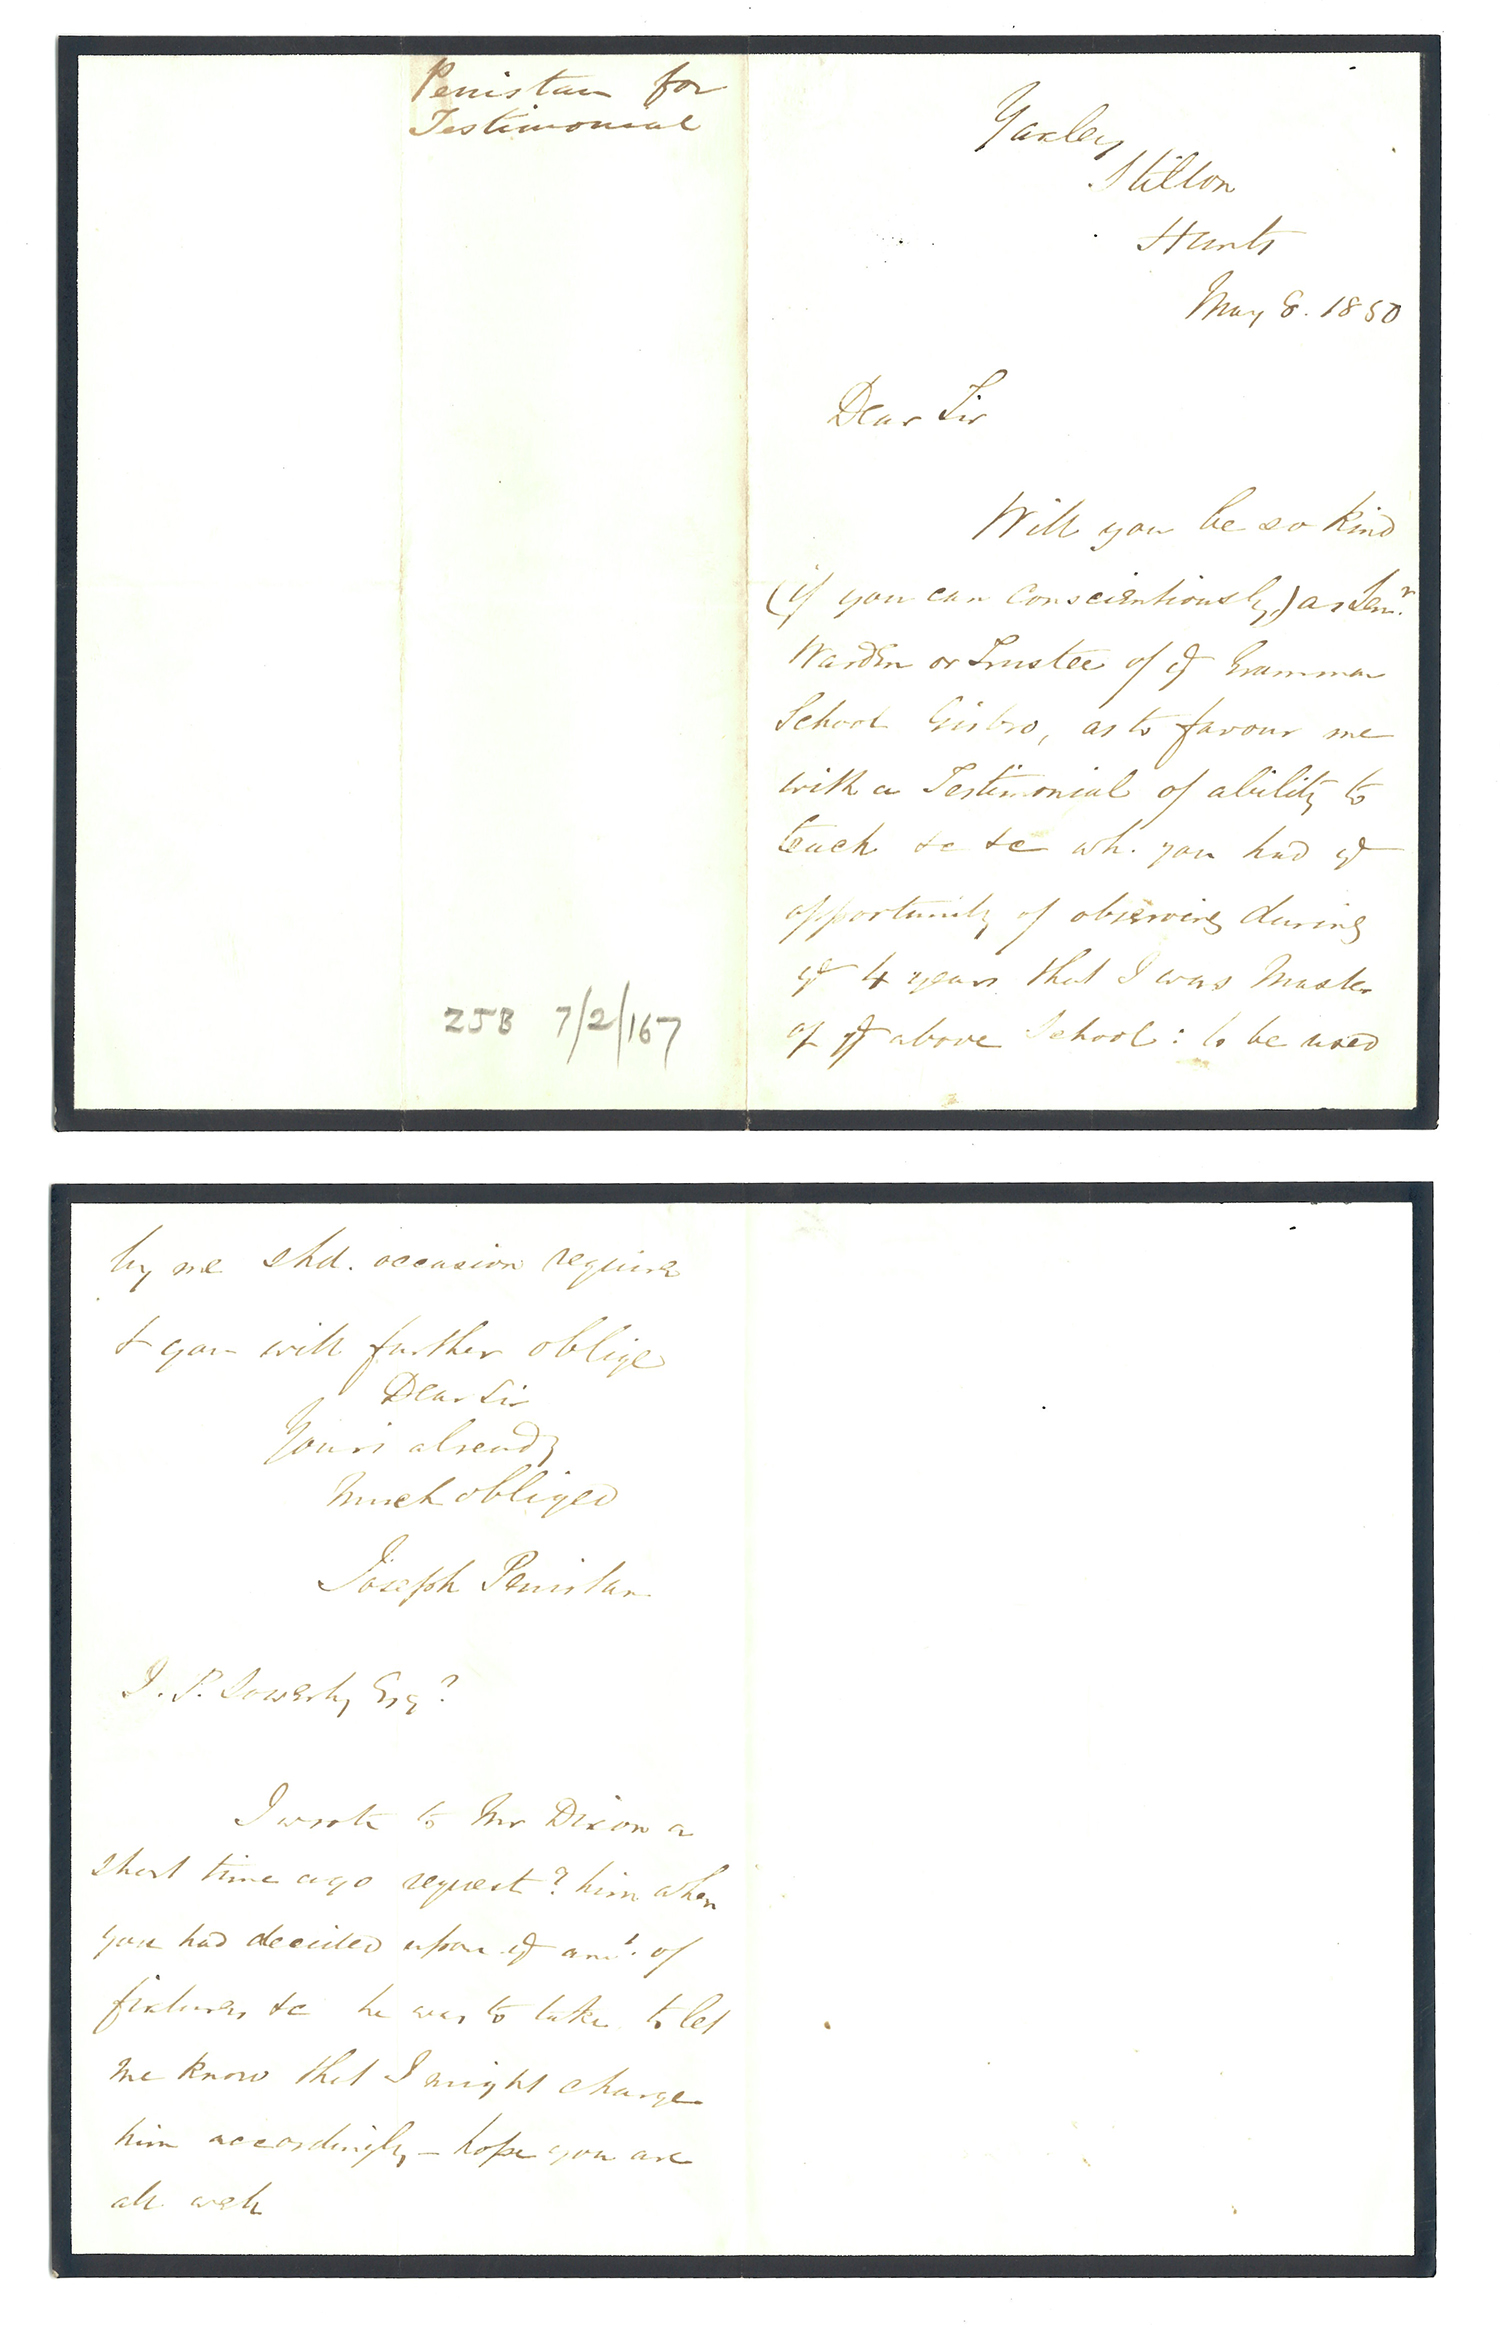 Penistan for
Testimonial
ZSB 7/2/167
Yaxley
Stilton
Hunts
May 8. 1850
Dear Sir
Will you be so kind
(if you can conscientiously) as Senr.
Warden or Trustee of ye Grammar
School Gisbro, as to favour me
with a Testimonial of ability to
teach &c &c wh. you had ye
opportunity of observing during
ye 4 years that I was Master
of ye above School: to be used
by me shd. occasion require
& you will further oblige
Dear Sir
Yours already
much obliged
Joseph Penistan
J. P. Sowerby Esqr.
I wrote to Mr Dixon a
short time ago requestg him when
you had decided upon ye amt. of
fixtures &c he was to take to let
me know that I might charge
him accordingly - hope you are
all well